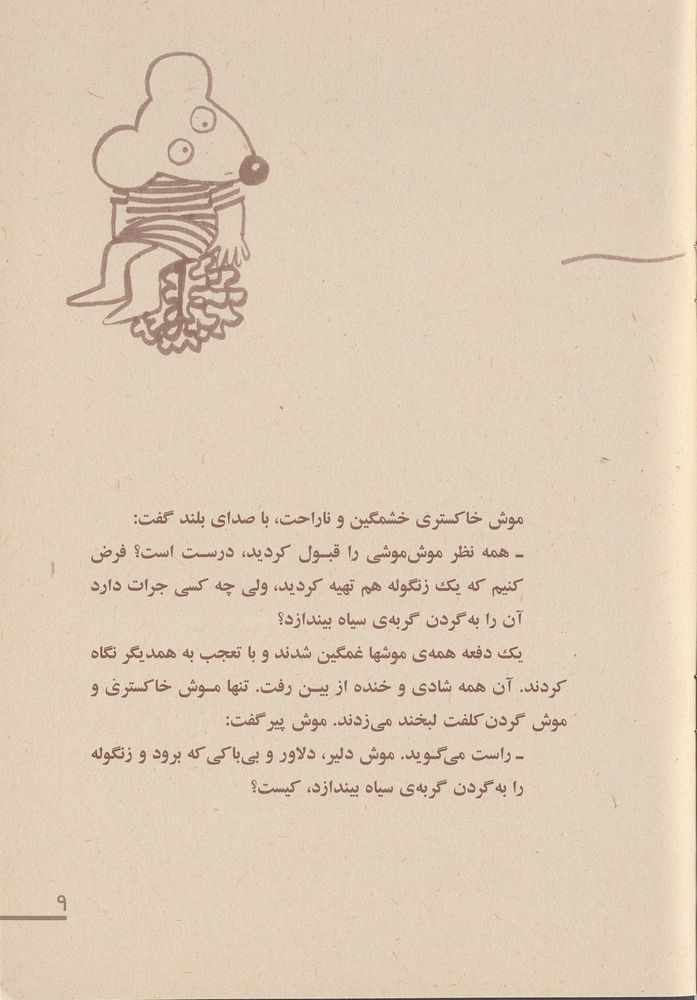 موش خاکستری خشمگین و ناراحت، با صدای بلند گفت:
ـ همه نظر موش‌موشی را قبول کردید، درست است؟ فرض
کنیم که یک زنگوله هم تهیه کردید، ولی چه کسی جرات دارد
آن را به گردن گربه‌ی سیاه بیندازد؟
یک دفعه همه‌ی موشها غمگین شدند و با تعجب به همدیگر نگاه
کردند. آن همه شادی و خنده از بین رفت. تنها موش خاکستری و
موش گردن‌کلفت لبخند می‌زدند. موش پیر گفت:
ـ راست می‌گوید. موش دلیر، دلاور و بی‌باکی که برود و زنگوله
را به گردن گربه‌ی سیاه بیندازد، کیست؟
۹